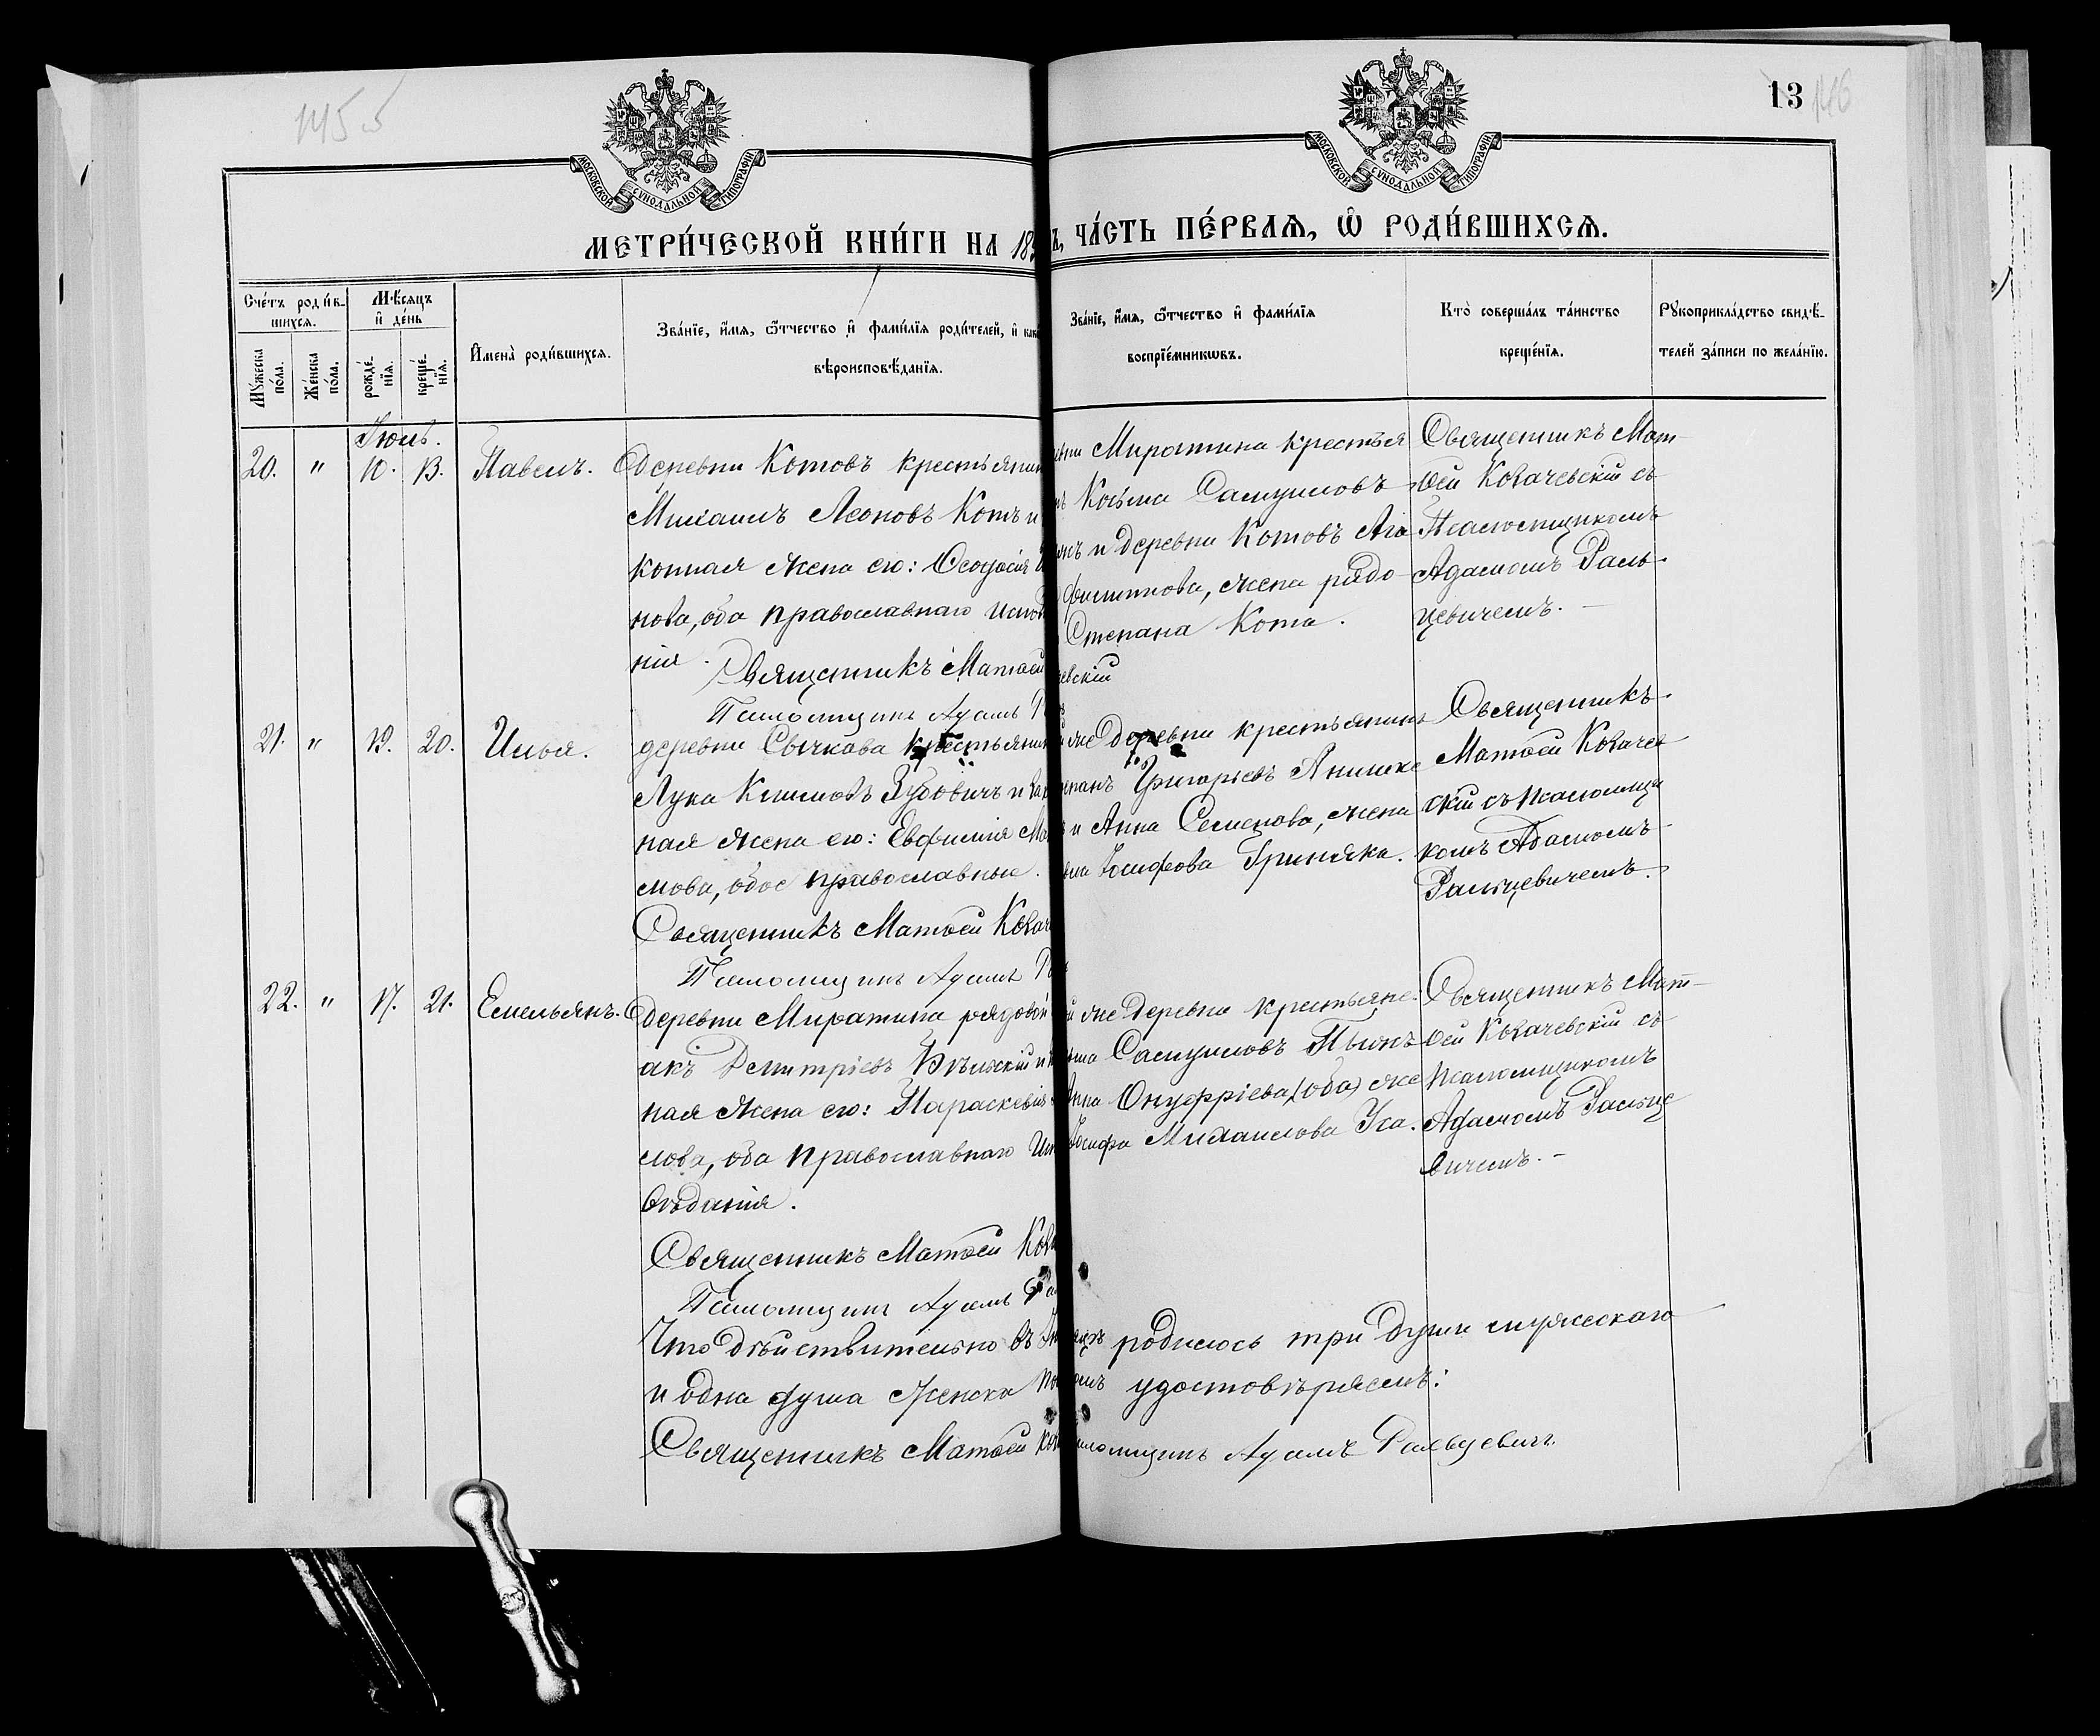 145
13 146
МОСКОВСКОЙ СѴНОДАЛЬНОЙ ТИПОГРАФІИ
МОСКОВСКОЙ СѴНОДАЛЬНОЙ ТИПОГРАФІИ
МЕТРИ́ЧЕСКОЙ КНИ́ГИ НА 18 ЧА́СТЬ ПЕ́РВАѦ, Ѡ҆ РОДИ́ВШИХСѦ.
Сче́тъ роди́в-
шихсѧ.
Мꙋ́жеска по́ла.
Же́нска по́ла.
Мѣ́сѧцъ
и҆ де́нь
рожде́-
нїѧ.
креще́-
нїѧ.
И҆мена̀ роди́вшихсѧ.
Зва́нїе, и҆́мѧ, ѻ҆́тчество и҆ фами́лїѧ роди́телей, и҆
вѣроисповѣ́данїѧ.
Зва́нїе, и҆́мѧ, ѻ҆́тчество и҆ фами́лїѧ
воспрїе́мникѡвъ.
Кто̀ соверша́лъ та́инство
креще́нїѧ.
Рꙋкоприкла́дство свидѣ́-
телей за́писи по жела́нїю.
Іюнь.
20. " 10. 13. Павелъ.
деревни Котовъ крестьянин
Михаилъ Леоновъ Котъ и
конная жена его: Ѳеодосія
нова, оба православнаго испов
нія.
Священникъ Матѳей
Псаломщикъ Адамъ
Миротина крестья
Косьма Самуиловъ
и деревни Котовъ Ага
филиппова, жена рядо
Степана Кота.
евскій
Священникъ Мат-
ѳей Ковачевскій съ
Псаломщикомъ
Адамомъ Раль-
цевичемъ.
21. " 19. 20. Илья.
деревни Сычкова крестьянин
Лука Климовъ Зубовичъ и зак
ная жена его: Евфимія Ма
мова, обое православные.
Священникъ Матѳей Ковач
Псаломщикъ Адамъ
же деревни крестьянинъ
Григорьевъ Анишке
и Анна Семенова, жена
Іосифова Гриняка.
Священникъ
Матѳей Ковачев
скій съ псаломщи
комъ Адамомъ
Ральцевичемъ.
22. " 17. 21. Емельянъ.
деревни Миротина рядовой
акъ Демитріевъ и
ная жена его: Параскевія
лова, оба православнаго Исп
вѣданія.
Священникъ Матѳей Кова
Псаломщикъ Адамъ
же деревни крестьяне:
Самуиловъ
Анна Онуфріева, (оба) же
Іосифа Михаилова
Священникъ Мат-
ѳей Ковачевскій съ
псаломщикомъ
Адамомъ Ральце
вичемъ.
Что дѣйствительно въ родилось три души мужескаго
и одна душа женска удостовѣряемъ:
Священникъ Матѳей Псаломщикъ Адамъ Ральцевичъ.